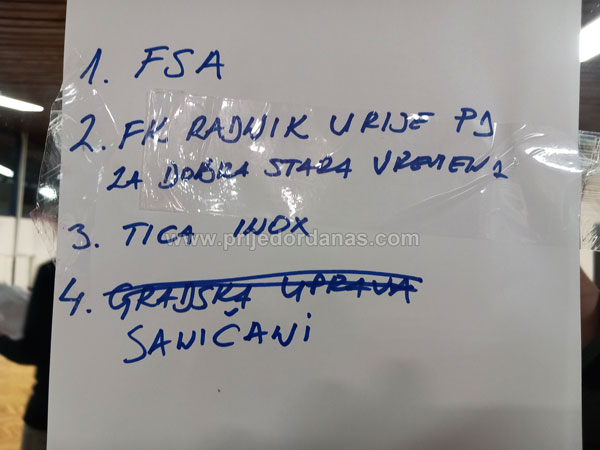 1. FSA
2. FK RADNIK URIJE PD
ZA DOBRA STARA VREMENA
3. TICA INOX
www.prijedordanas.com
4. GRADSKA UPRAVA
SANIČANI